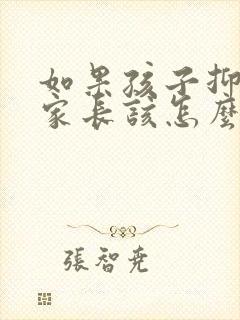 如果孩子抑
家長該怎麼
張智堯